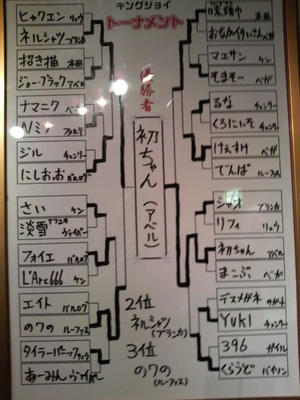 キングジョイ
トーナメント
優勝者
初ちゃん
(アベル)
2位
ネルシャツ
(ブランカ)
3位
のワの
(ルーファス)
ヒャクエン リュウ
ネルシャツ ブランカ
招き猫 本田
ジョーブラック アベル
ナマニク
Nミノ
ジル チュンリー
にしおお バルログ
さい ケン
淡雪
フォイエ バルログ
L'Arc666 ケン
エイト バルログ
のワの ルーファス
タイラーバーック
あーみん
本田
おなかイタいさん
マエサン ケン
そまそー ベガ
るな チュンリー
くろにぃぞ
けえすけ ベガ
でんぱ ルーファス
シャオ ブランカ
リフィ リュウ
初ちゃん アベル
まこぷ ベガ
デスメガネ サガット
YUKI チュンリー
396 ガイル
くらうど バイソン